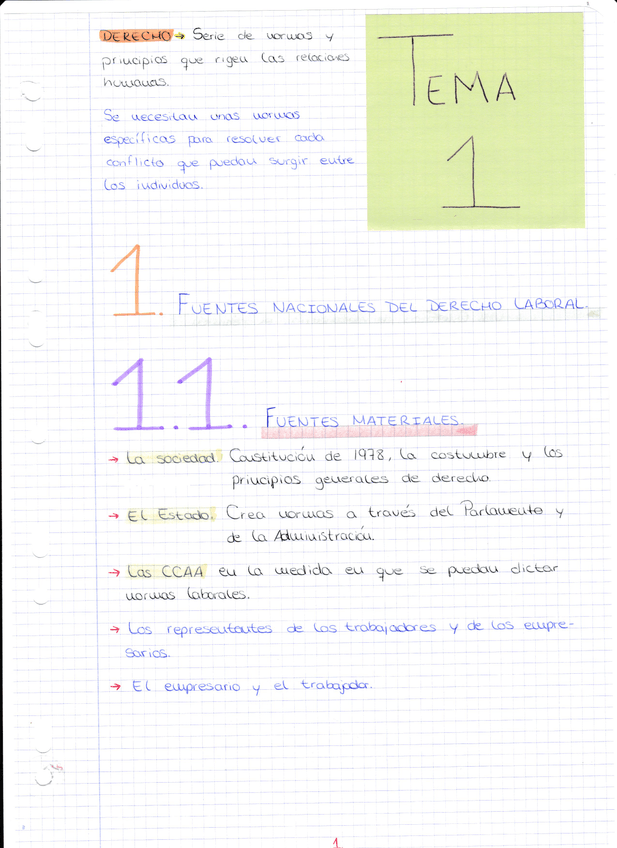 DERECHO → Serie de normas y
principios que rigen las relaciones
humanas.
Se necesitan unas normas
específicas para resolver cada
conflicto que puedan surgir entre
los individuos.
TEMA
1
1. FUENTES NACIONALES DEL DERECHO LABORAL.
1.1. FUENTES MATERIALES.
→ La sociedad. Constitución de 1978, la costumbre y los
principios generales de derecho.
→ El Estado. Crea normas a través del Parlamento y
de la Administración.
→ Las CCAA en la medida en que se puedan dictar
normas laborales.
→ Los representantes de los trabajadores y de los empre-
sarios.
→ El empresario y el trabajador.
1